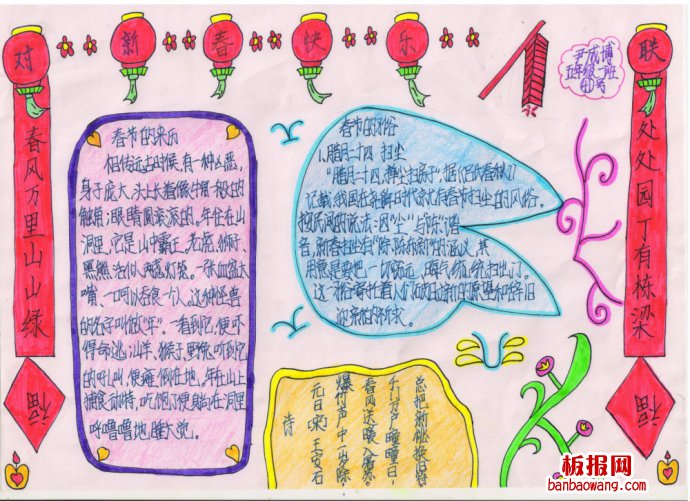 对 新 春 快 乐 联
尹成博
五年级一班
40号
春风万里山山绿
处处园丁有栋梁
福
福
春节的来历
相传远古时候,有一种凶恶,
身子庞大,头上长着像
触角;眼睛圆滚滚的。年住在山
洞里,它是山中霸王。老虎、猴子、
黑熊 两盏灯笼。一张血盆大
嘴,一口可以吞食一个人,这种怪兽
的名字叫做“年”。一看到它,便吓
得命逃;山羊、猴子、野兔,听到它
的吼叫,便瘫倒在地。年在山上
捕食动物,吃饱了便躺在洞里
呼噜噜地睡大觉。
春节的习俗
1.腊月二十四 扫尘
“腊月二十四,掸尘扫房子”据《吕氏春秋》
记载,我国在尧舜时代就有春节扫尘的风俗。
按民间的说法:因“尘”与“陈”谐
音,新春扫尘有“除陈布新”的涵义,其
用意是要把一切穷运、晦气统统扫出门。
这一习俗寄托着人们破旧立新的愿望和辞旧
迎新的祈求。
诗
元日 宋 王安石
爆竹声中一岁除,
春风送暖入屠苏。
千门万户曈曈日,
总把新桃换旧符
板报网
banbaowang.com